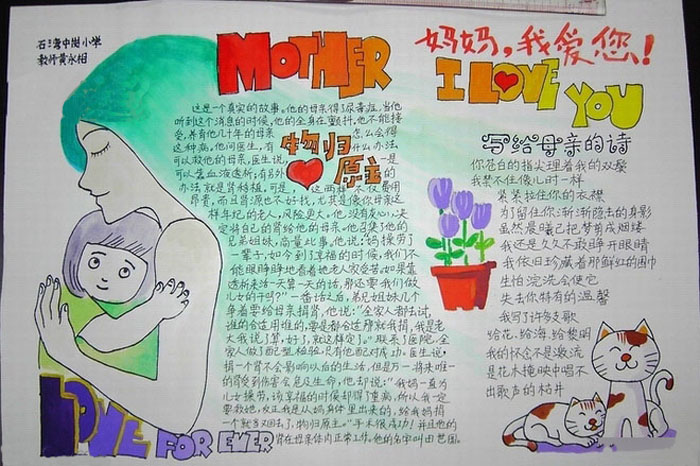 石三湾中街小学
教师黄永相
MOTHER
妈妈，我爱您！
I LOVE YOU
物归
原主
这是一个真实的故事。他的母亲得了尿毒症，当他
听到这个消息的时候，他的全身在颤抖，他不能接
受，养育他几十年的母亲 怎么会得
这种病，他问医生，有 什么办法
可以救他的母亲，医生说， 一是
可以靠血液透析，有另外 的
办法就是肾移植，可是， 这两样不仅费用
昂贵，而且肾源也不好找，尤其是像你母亲这
样年纪的老人，风险更大。他没有灰心，决
定将自己的肾给他的母亲。他召集了他的
兄弟姐妹，商量此事。他说：妈操劳了
一辈子，如今到了享福的时候，我们不
能眼睁睁地看着她老人家受苦，如果靠
透析来活一天算一天的话，那还要我们做
儿女的干吗？”一番话之后，弟兄姐妹几个
争着要给母亲捐肾，他说：“全家人都去试，
谁的合适用谁的，要是都合适那就我捐，我是老
大我说了算，好了，就这样定了。”联系了医院，全
家人做了配型检验，只有他配对成功。医生说，
捐一个肾不会影响以后的生活，但是万一将来唯一
的肾受到伤害会危及生命，他却说：“我妈一直为
儿女操劳，该享福的时候却得了重病，所以我一定
要救她，反正我是从妈身体里出来的，给我妈捐
一个就当又回去了，物归原主。”手术很成功！并且他的
肾在母亲体内正常工作。他的名字叫田世国。
LOVE FOR EVER
写给母亲的诗
你苍白的指尖理着我的双鬓
我禁不住像儿时一样
紧紧拉住你的衣襟
为了留住你渐渐隐去的身影
虽然晨曦已把梦剪成烟缕
我还是久久不敢睁开眼睛
我依旧珍藏着那鲜红的围巾
生怕浣洗会使它
失去你特有的温馨
我写了许多支歌
给花，给海，给黎明
我的怀念不是激流
是花木掩映中唱不
出歌声的枯井